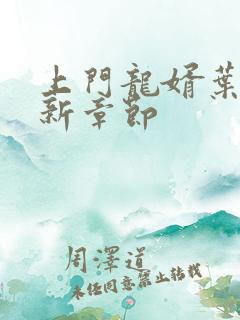 上門龍婿葉
新章節
周澤道
未经同意禁止转载